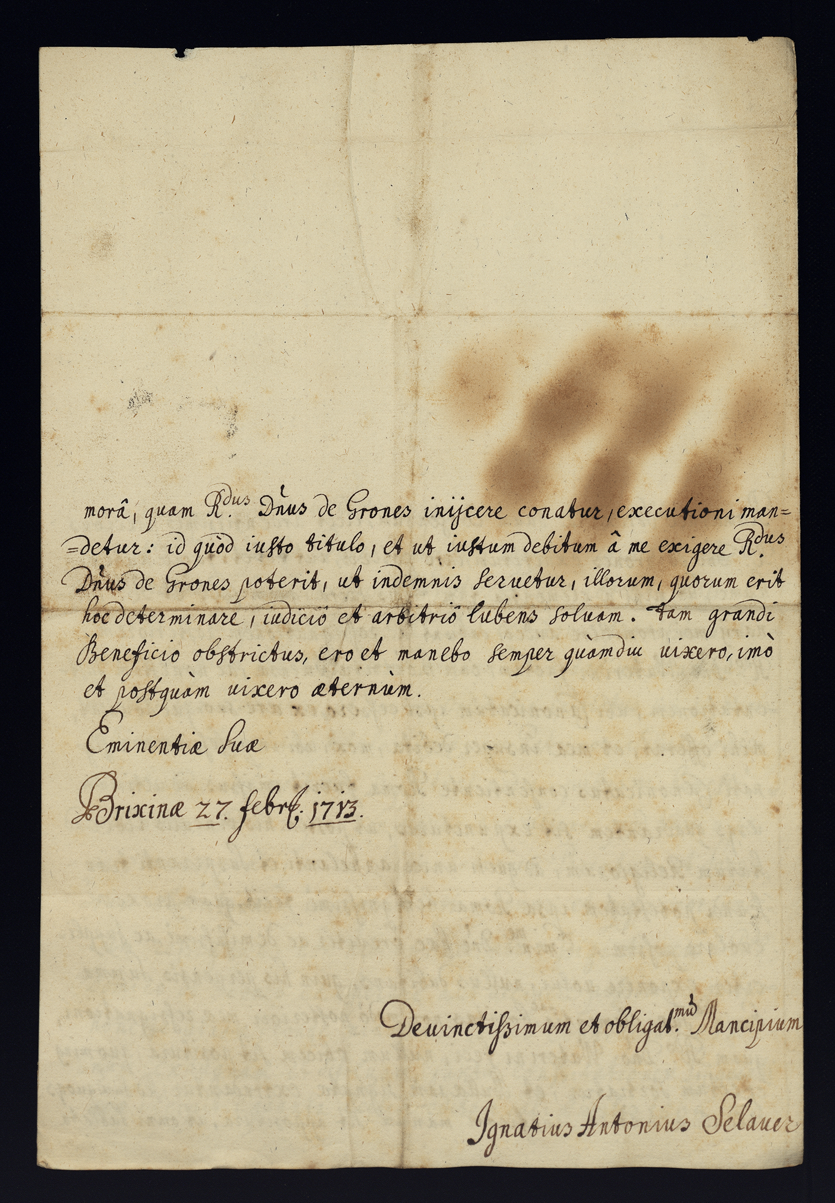 morâ, quam R.dus Dñus de Grones inijcere conatur, executioni man=
=detur: id quòd iusto titulo, et ut iustum debitum â me exigere R.dus
Dñus de Grones poterit, ut indemnis seruetur, illorum, quorum erit
hoc determinare, iudiciô et arbitriô lubens soluam. Tam grandi
Beneficio obstrictus, ero et manebo semper quàmdiu uixero, imò
et postquàm uixero æternùm.
Eminentiæ Suæ
Brixinæ 27. febr. 1713.
Deuinctissimum et obligat.mũ Mancipium
Ignatius Antonius Selauer